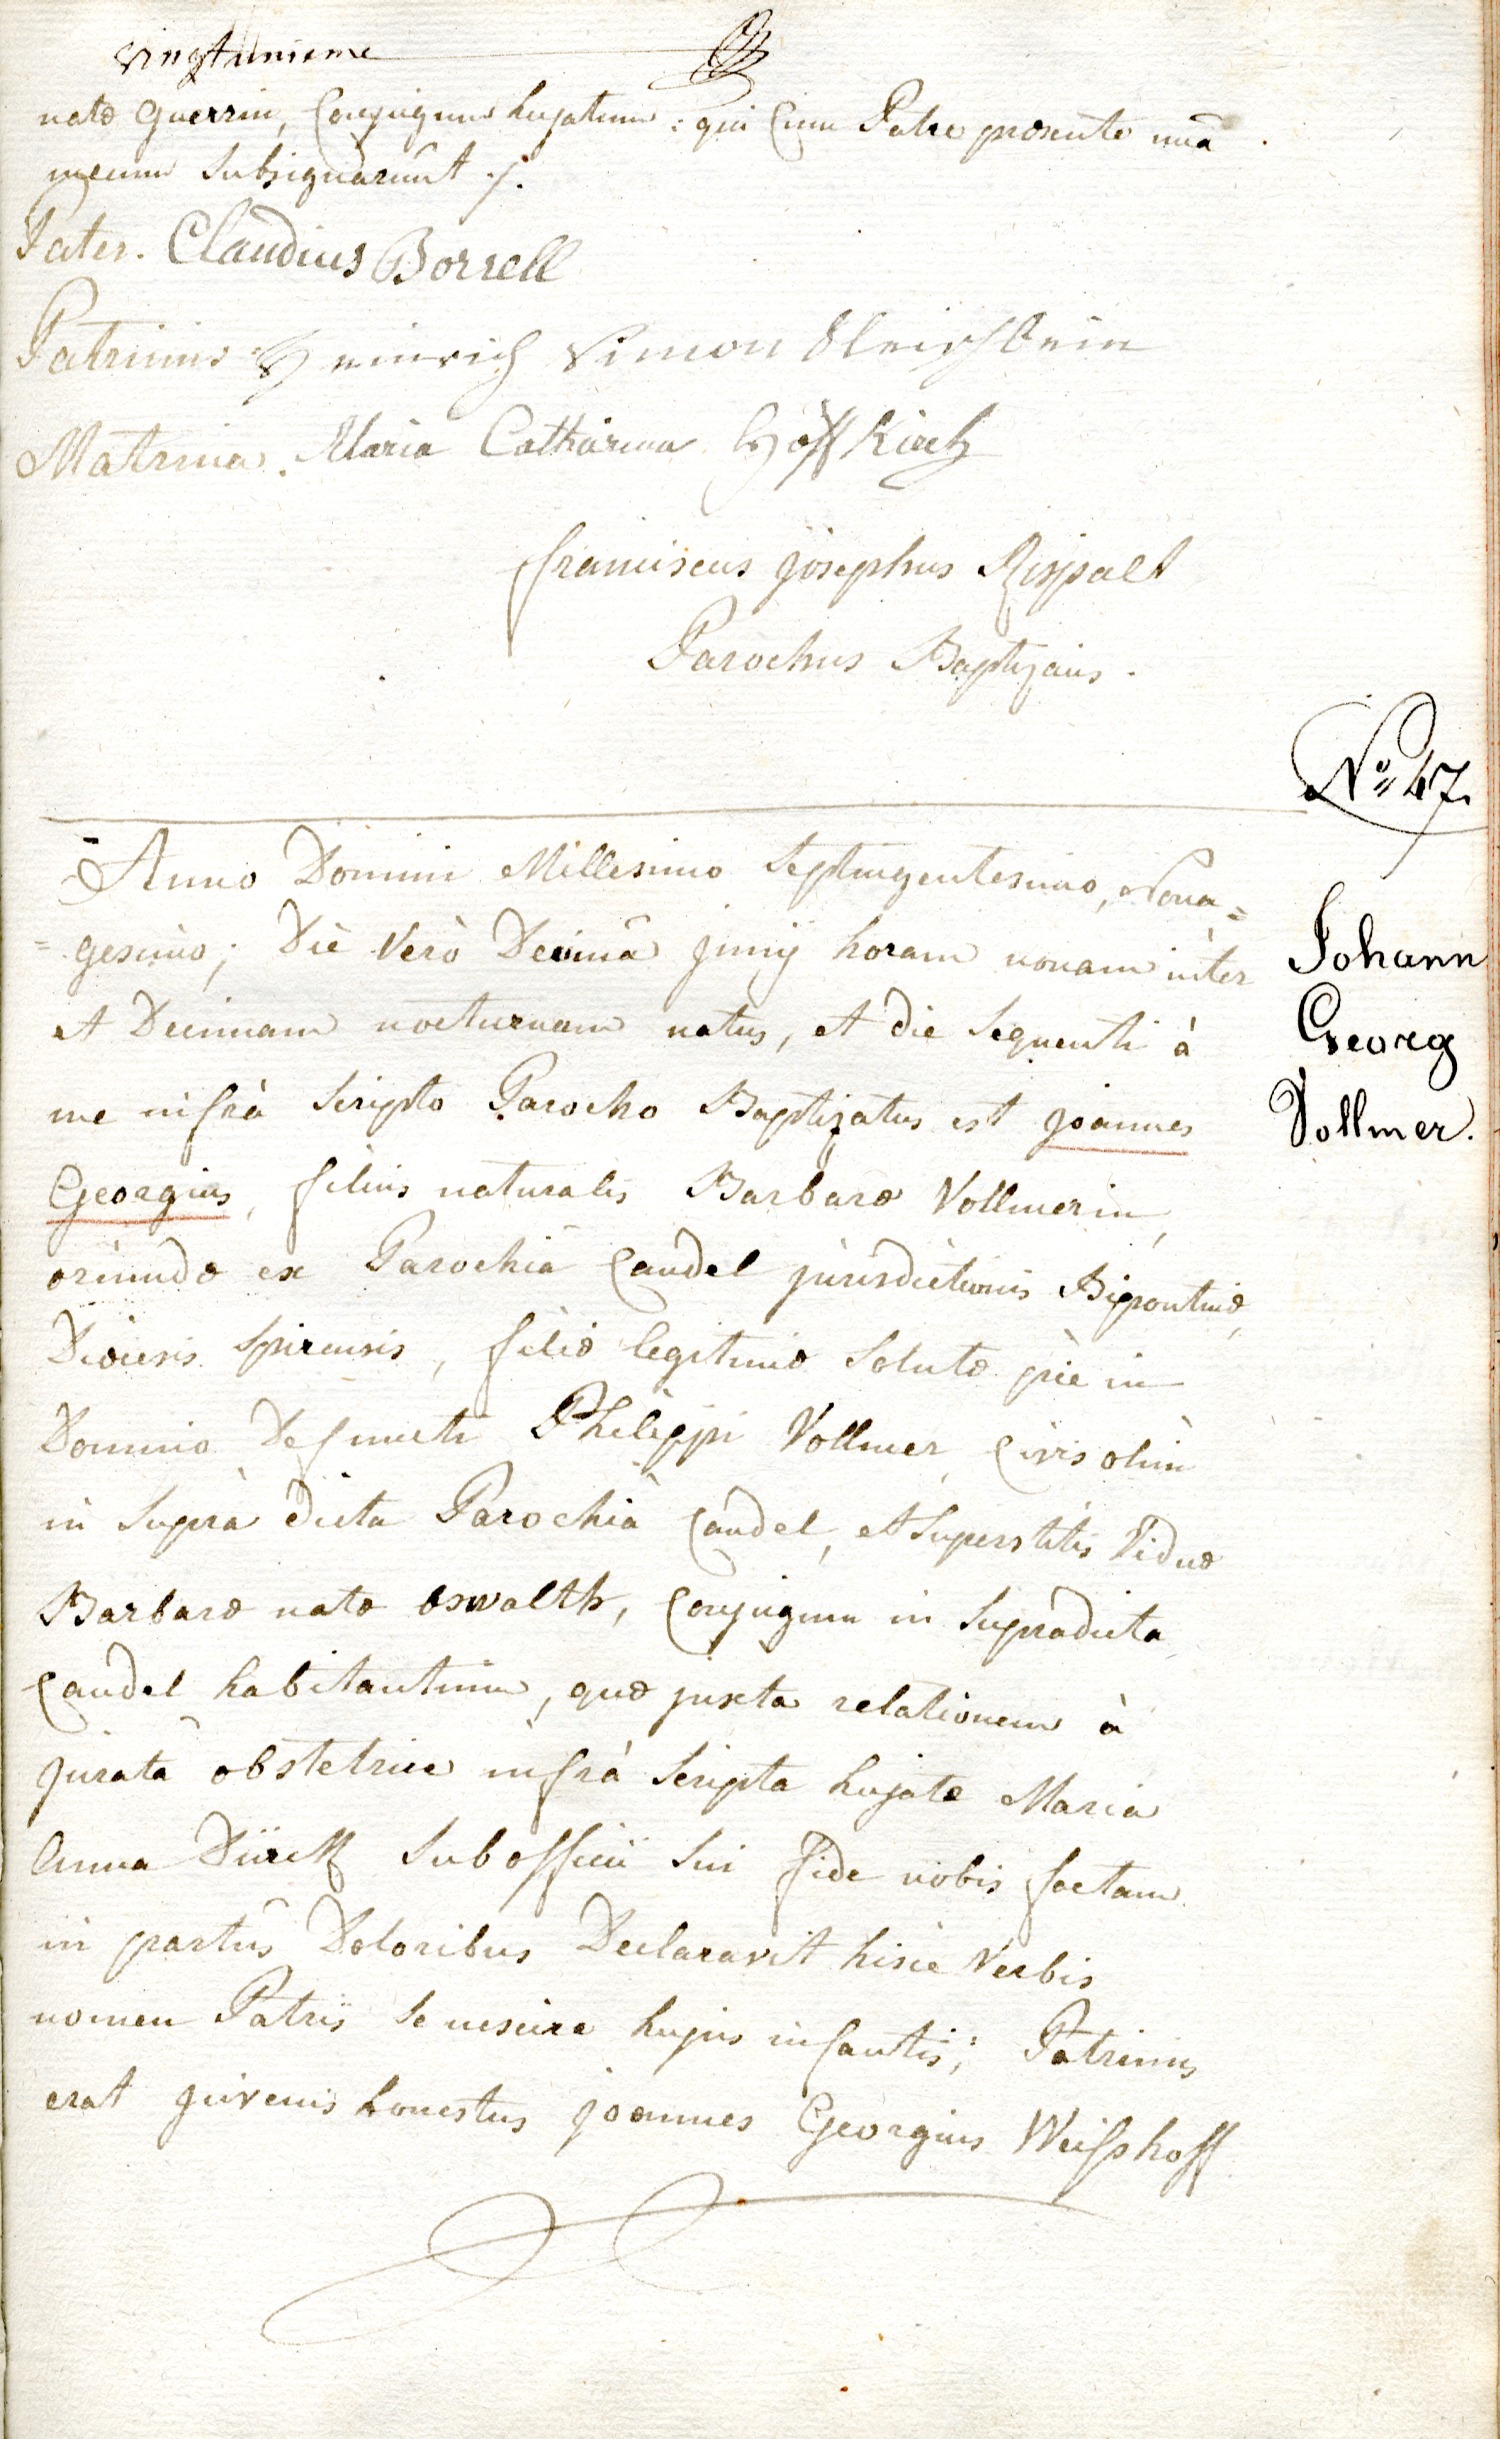 vingtunieme
natæ Guerrin, Conjugum hujatum: qui Cum Patre præsente unà
mecum Subsignârunt ./.
Pater. Claudius Borrell
Patrinus Heinrich Simon
Matrina. Maria Catharina
franciscus josephus Rispalt
Parochus Baptizans.
Nº 47.
Anno Domini Millesimo Septingentesimo, Nona=
=gesimo; Die Verò Decimâ junij horam nonam inter
et Decimam nocturnam natus, et die Sequenti à
me infrà Scripto Parocho Baptizatus est joannes
Georgius, filius naturalis Barbaræ Vollmerin,
oriundæ ex Parochiâ Candel jurisdictionis Bipontinæ,
Diœcesis Spirensis, filiæ legitimæ Solutæ piè in
Domino Defuncti Philippi Vollmer, Civis olim
in Suprà dicta Parochiâ Candel, et Superstitis Viduæ
Barbaræ natæ Oswalth, Conjugum in Supradicta
Candel habitantium, quæ juxta relationem à
juratâ obstetrice infrà Scripta hujate Maria
Anna Dürck Sub officii Sui fide nobis factam
in partûs Doloribus Declaravit hisce Verbis
nomen Patris Se nescire hujus infantis; Patrinus
erat juvenis honestus joannes Georgius Weisshoff
Johann
Georg
Vollmer.